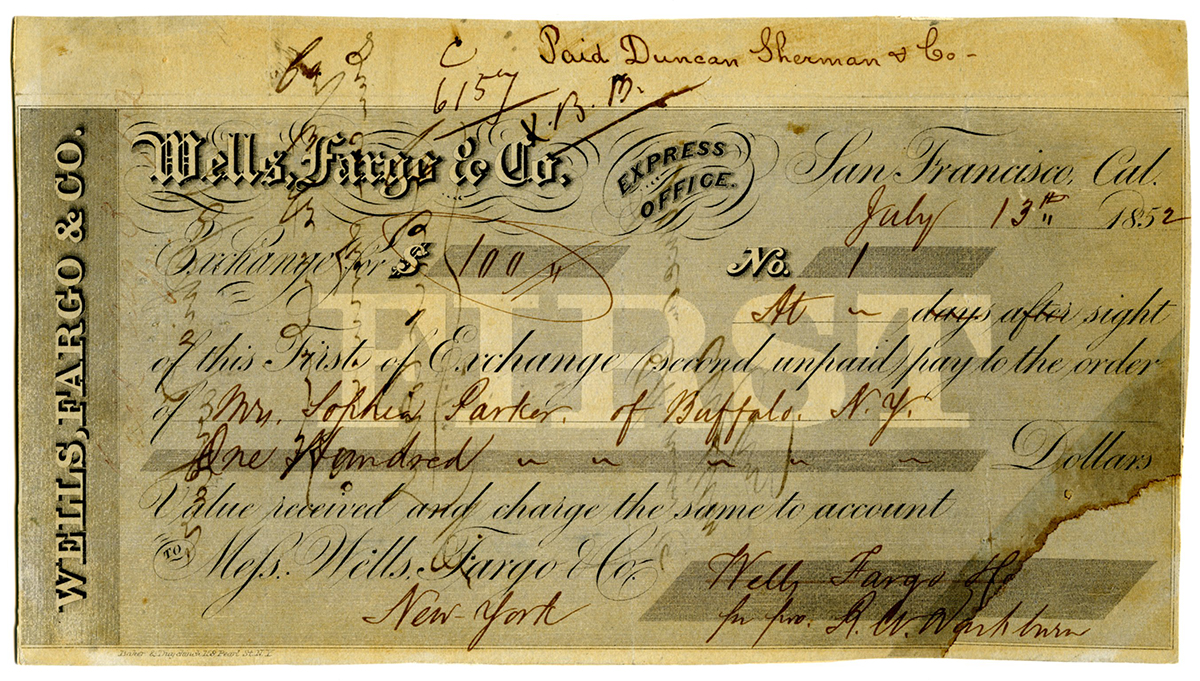 Paid Duncan Sherman & Co -
C
6157
WELLS, FARGO & CO.
Wells, Fargo & Co.
EXPRESS OFFICE.
San Francisco, Cal.
July 13th 1852
Exchange for $ 100 No. 1
FIRST
At " days after sight
of this First of Exchange (second unpaid) pay to the order
of Mrs. Sophia Parker. of Buffalo. N.Y.
One Hundred " " " " " Dollars
Value received and charge the same to account
TO Mess. Wells, Fargo & Co.
New-York
Wells Fargo & Co
pr pro. R. W. Washburn